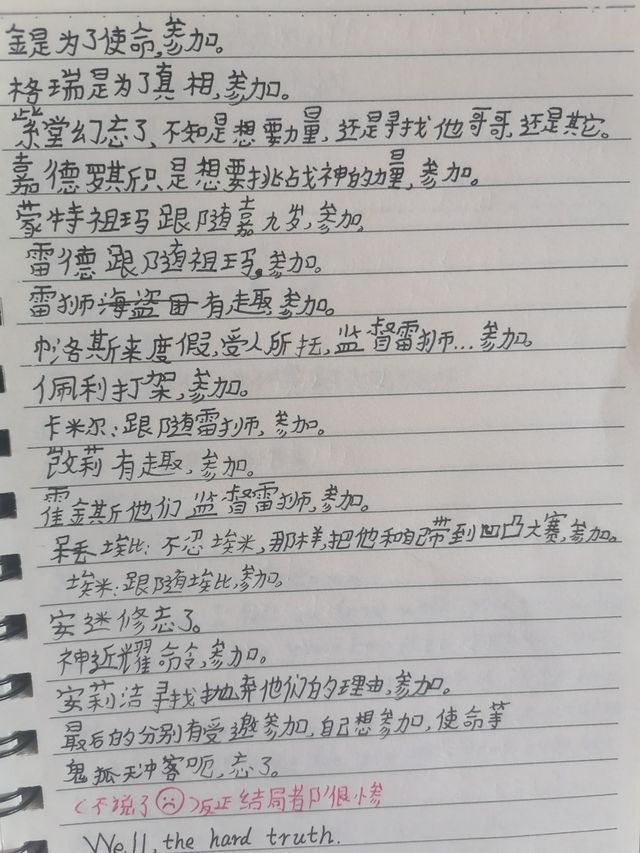 金是为了使命,参加。
格瑞是为了真相,参加。
紫堂幻忘了、不知是想要力量,还是寻找他哥哥,还是其它。
嘉德罗斯只是想要挑战神的力量,参加。
蒙特祖玛跟随嘉九岁,参加。
雷德跟随祖玛。参加。
雷狮海盗团有趣,参加。
帕洛斯来度假,受人所托,监督雷狮...参加。
佩利打架,参加。
卡米尔:跟随雷狮,参加。
凯莉有趣,参加。
霍金斯他们监督雷狮,参加。
埃比:不忍埃米,那样,把他和自己带到凹凸大赛,参加。
埃米:跟随埃比,参加。
安迷修忘了。
神近耀命令,参加。
安莉洁寻找抛弃他们的理由,参加。
最后的分别有受邀参加,自己想参加,使命等
鬼狐天冲客呃,忘了。
(不说了☹)反正结局都很惨
Well, the hard truth.